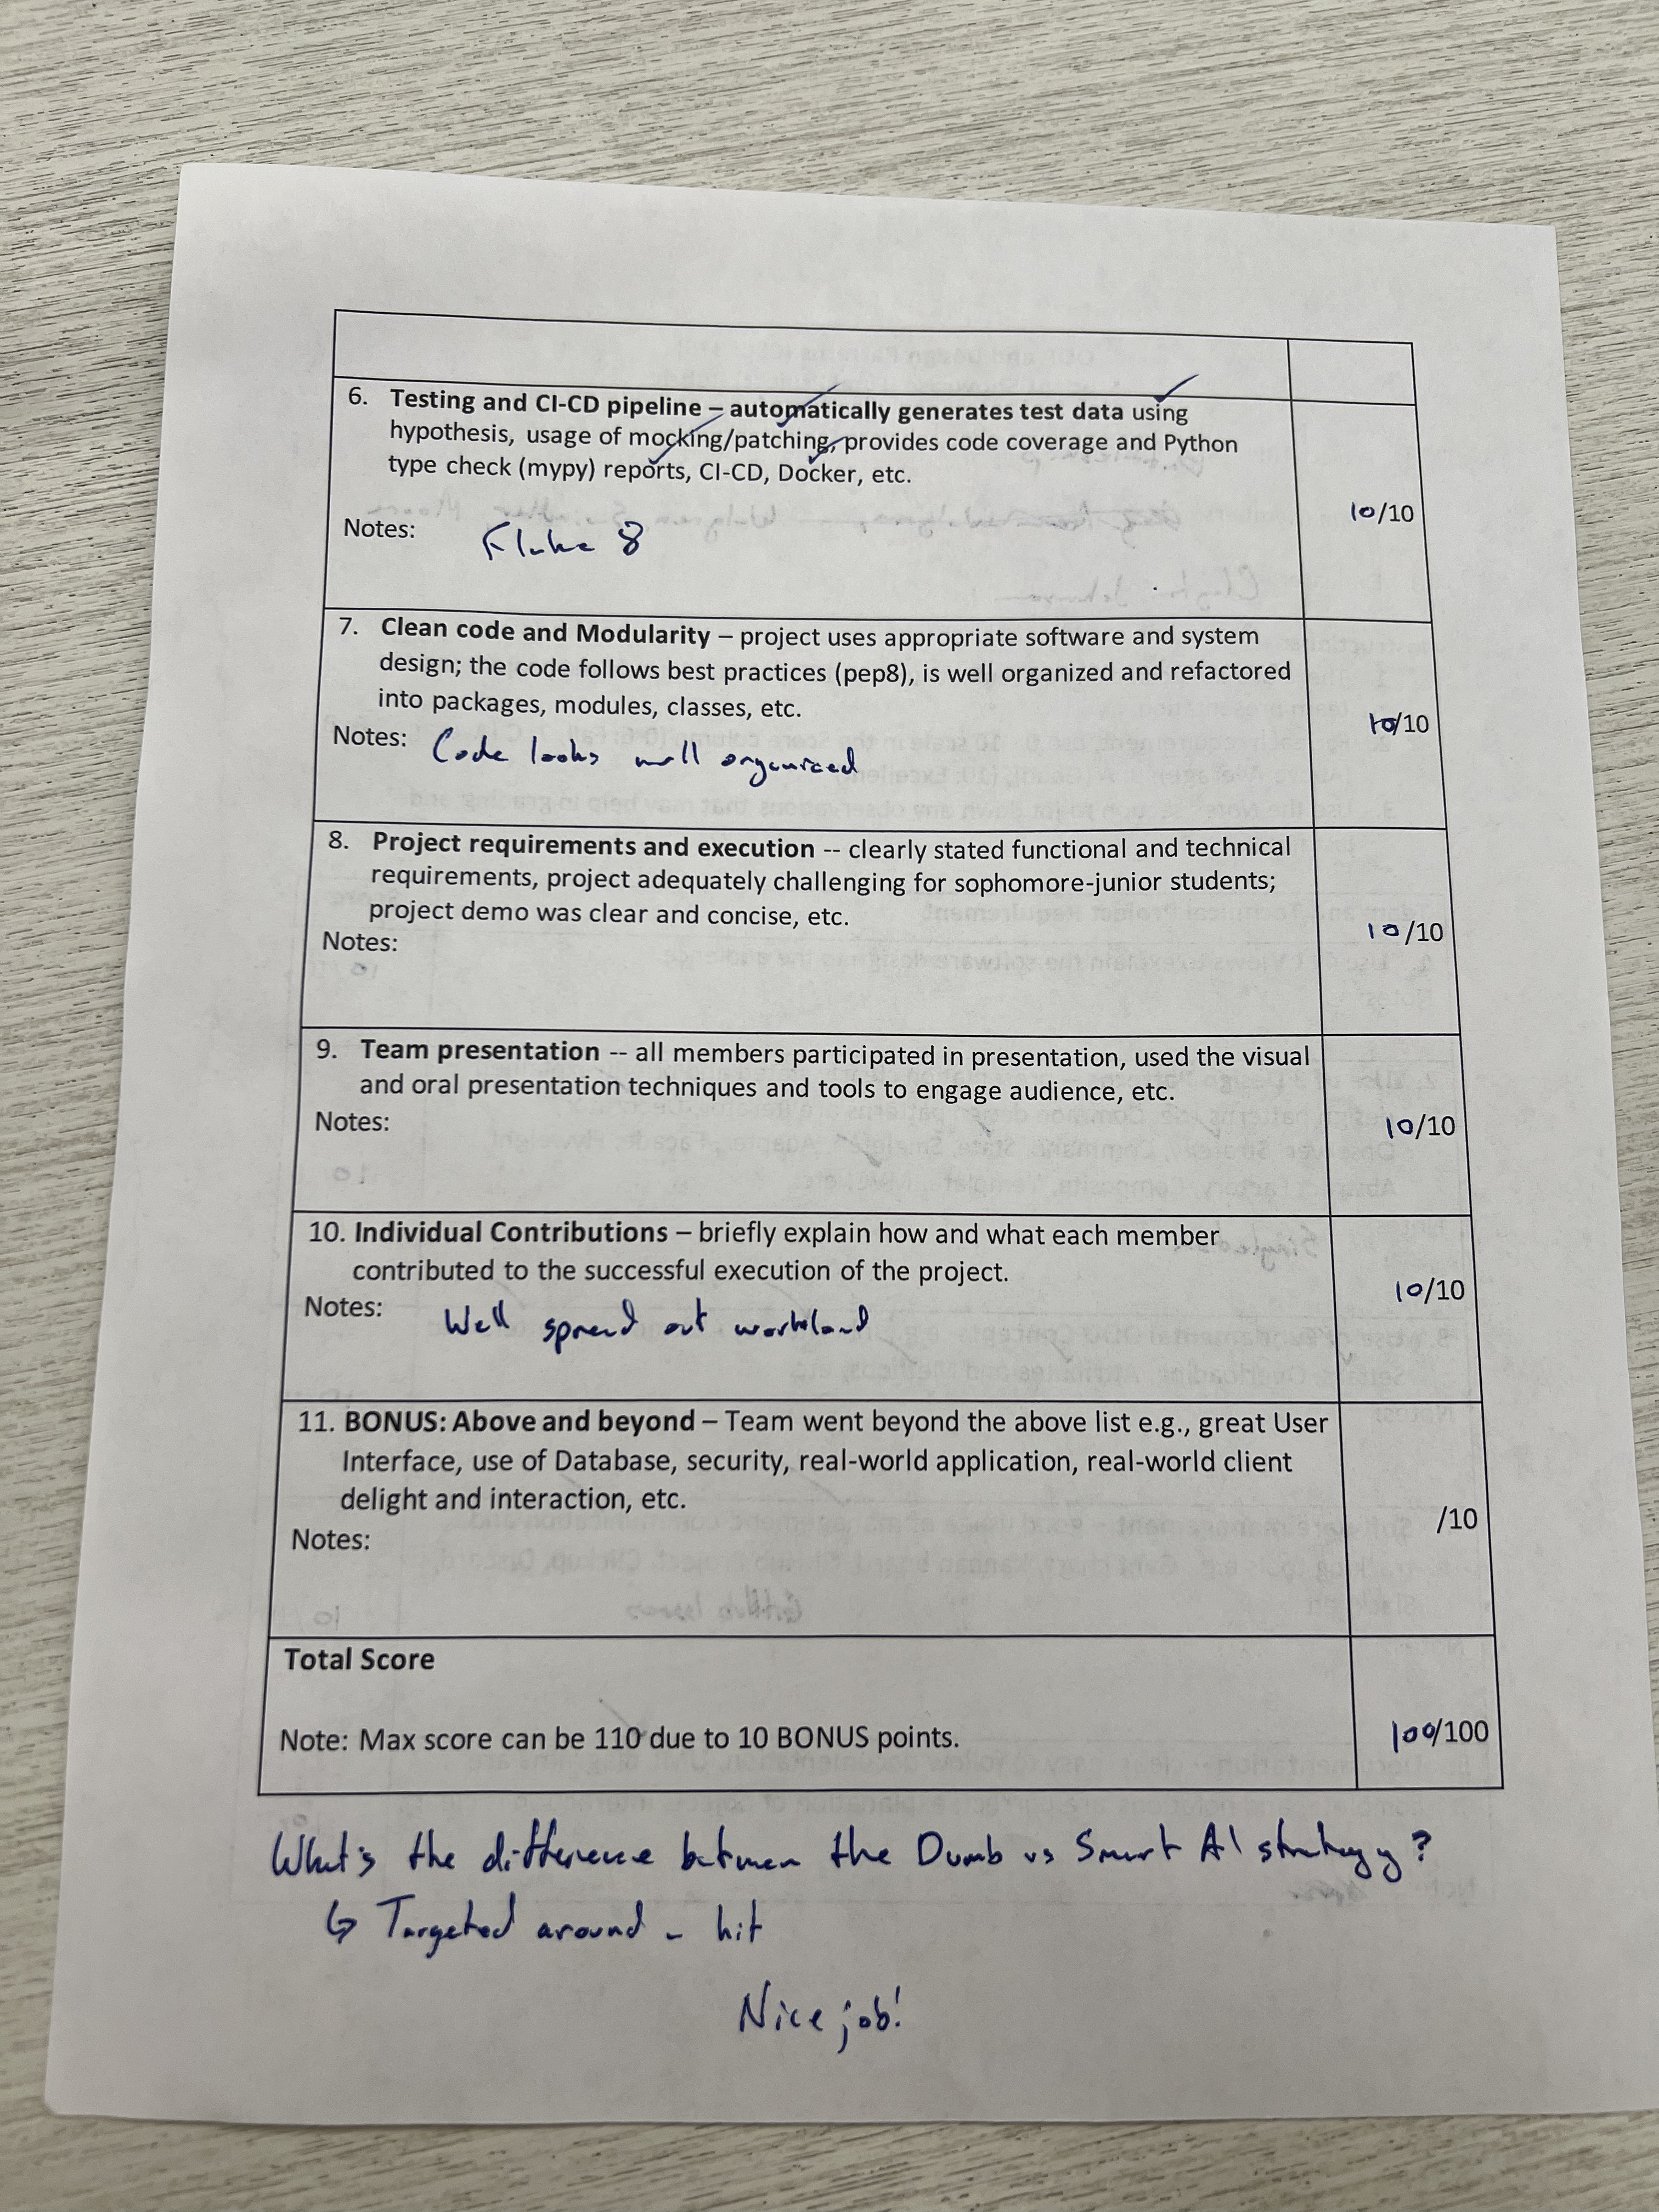 6. Testing and CI-CD pipeline – automatically generates test data using
hypothesis, usage of mocking/patching, provides code coverage and Python
type check (mypy) reports, CI-CD, Docker, etc.
Notes: Flake 8
10/10
7. Clean code and Modularity – project uses appropriate software and system
design; the code follows best practices (pep8), is well organized and refactored
into packages, modules, classes, etc.
Notes: Code looks well organized
10/10
8. Project requirements and execution -- clearly stated functional and technical
requirements, project adequately challenging for sophomore-junior students;
project demo was clear and concise, etc.
Notes:
10/10
9. Team presentation -- all members participated in presentation, used the visual
and oral presentation techniques and tools to engage audience, etc.
Notes:
10/10
10. Individual Contributions – briefly explain how and what each member
contributed to the successful execution of the project.
Notes: Well spread out workload
10/10
11. BONUS: Above and beyond – Team went beyond the above list e.g., great User
Interface, use of Database, security, real-world application, real-world client
delight and interaction, etc.
Notes:
/10
Total Score
Note: Max score can be 110 due to 10 BONUS points.
100/100
What's the difference between the Dumb vs Smart AI strategy?
↳ Targeted around a hit
Nice job!